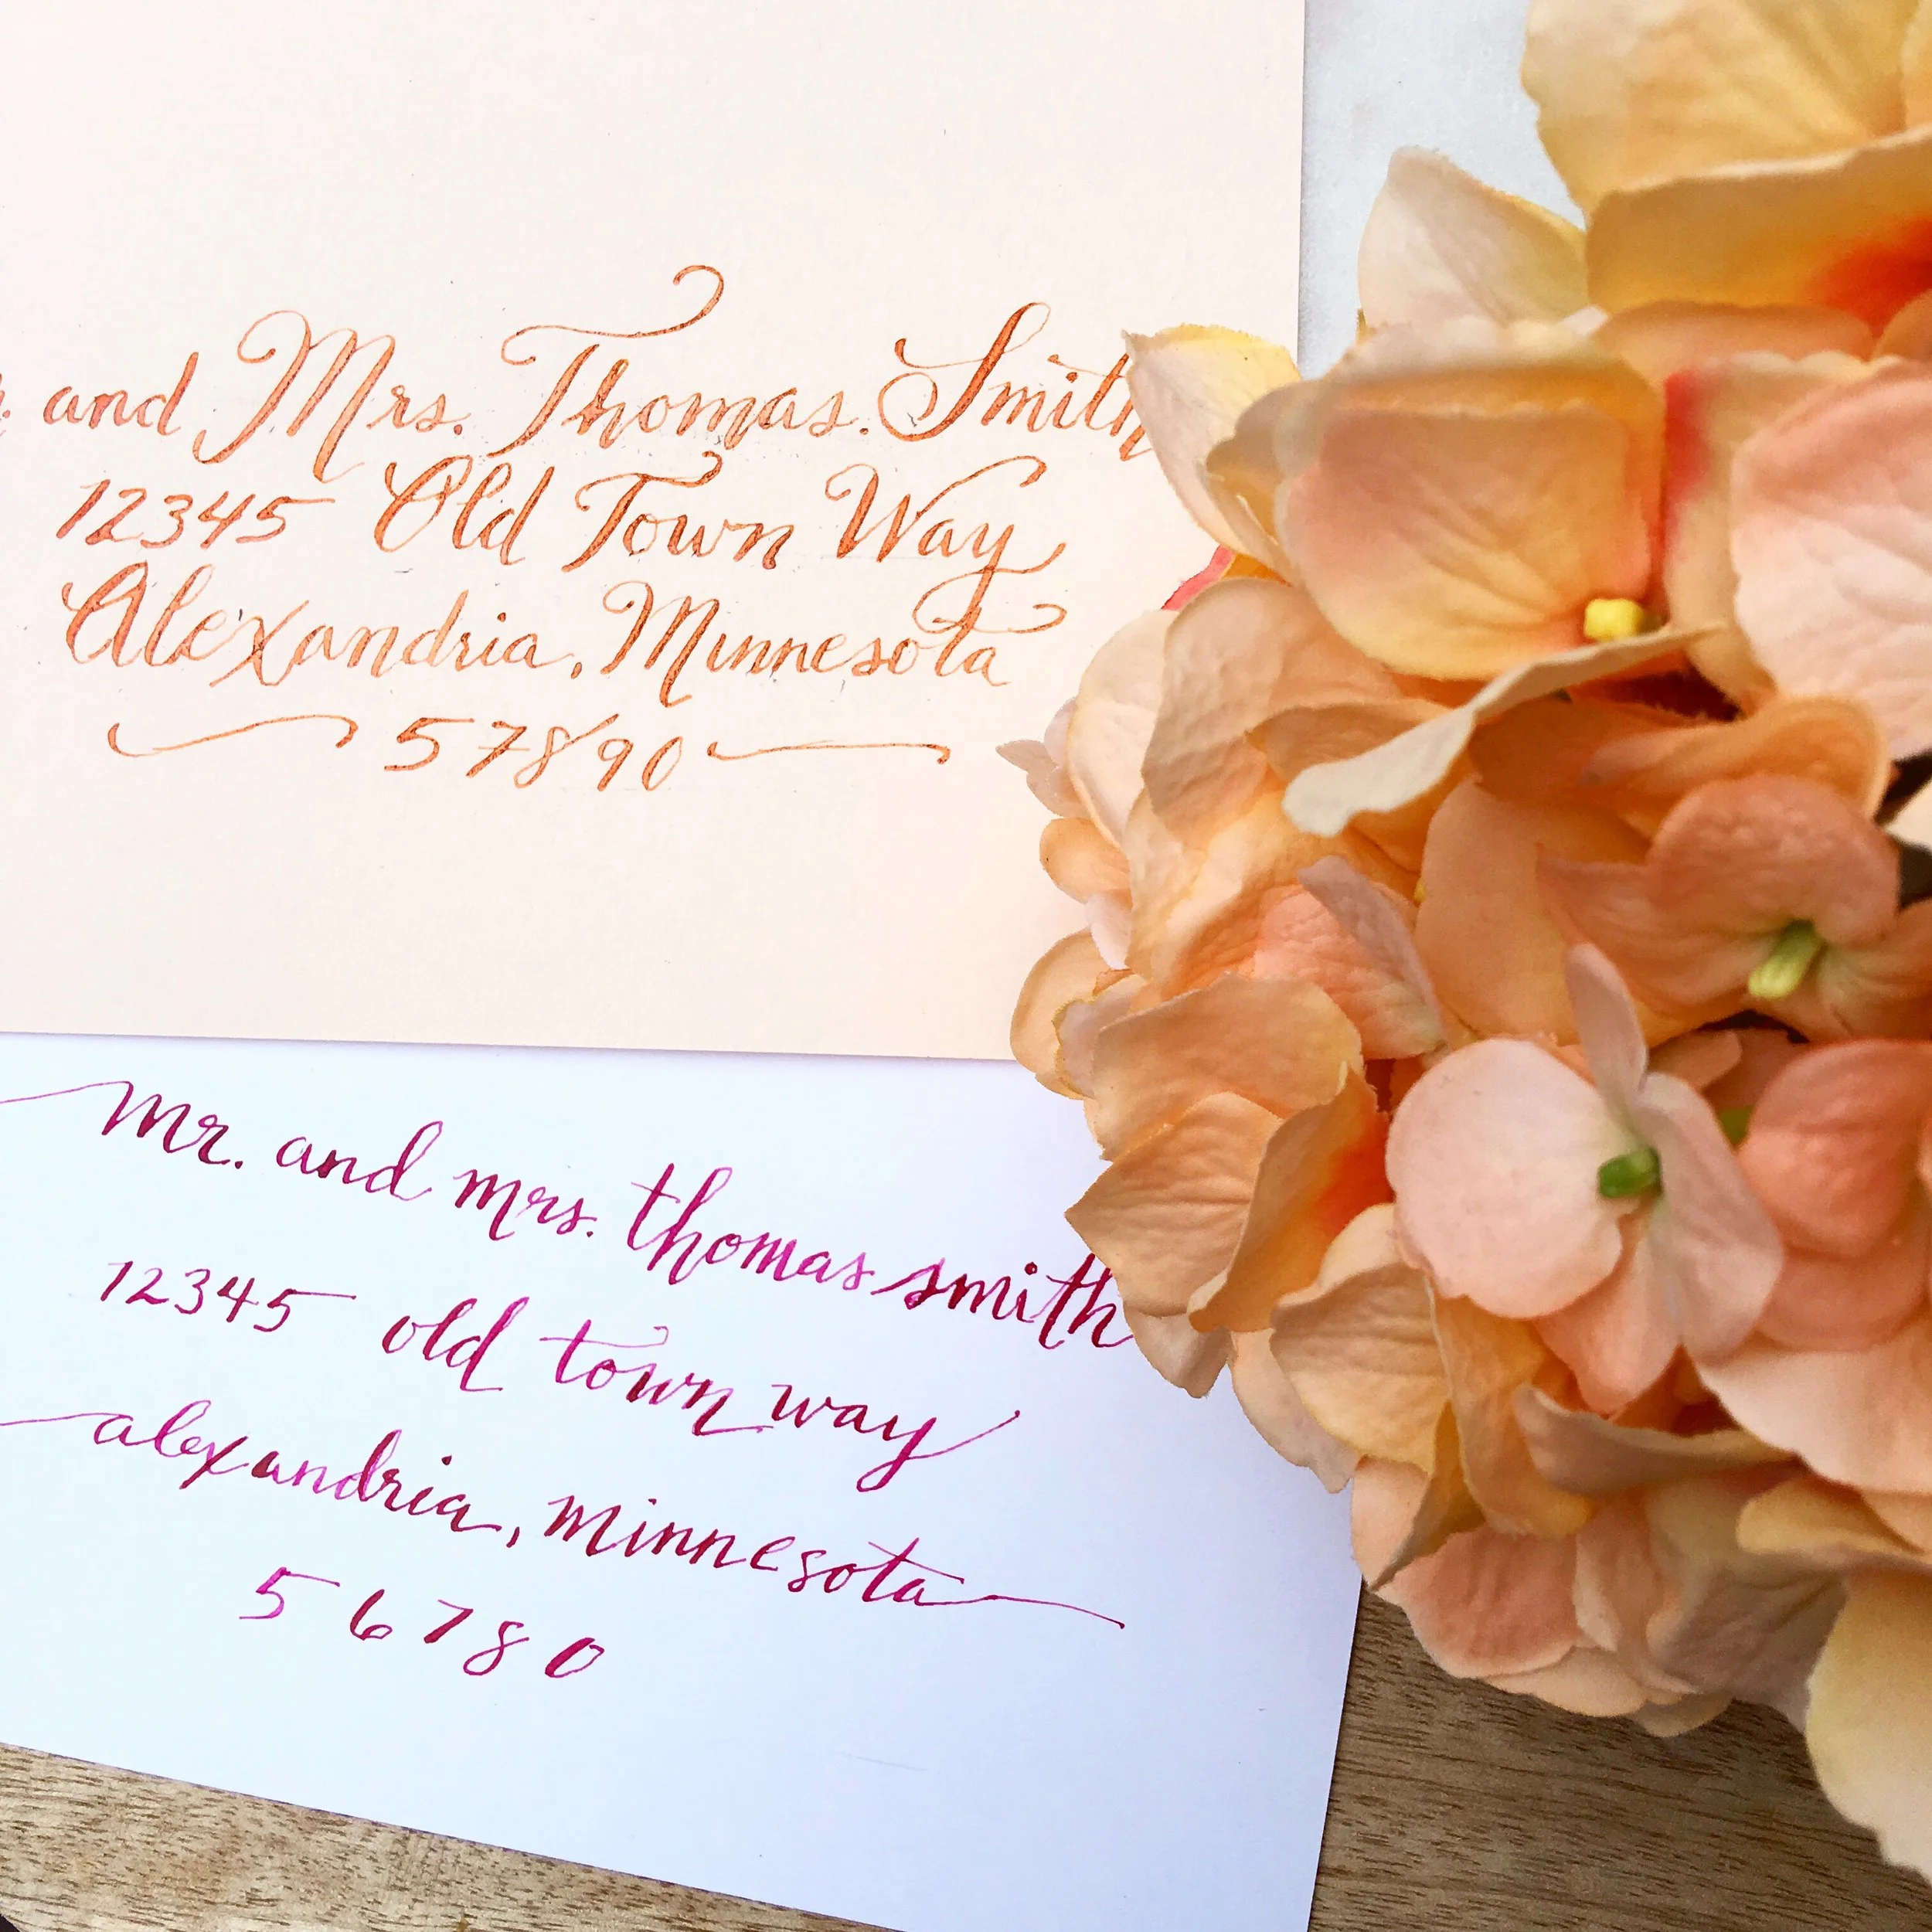 . and Mrs. Thomas. Smith
12345 Old Town Way
Alexandria, Minnesota
57890
mr. and mrs. thomas smith
12345 old town way
alexandria, minnesota
56780